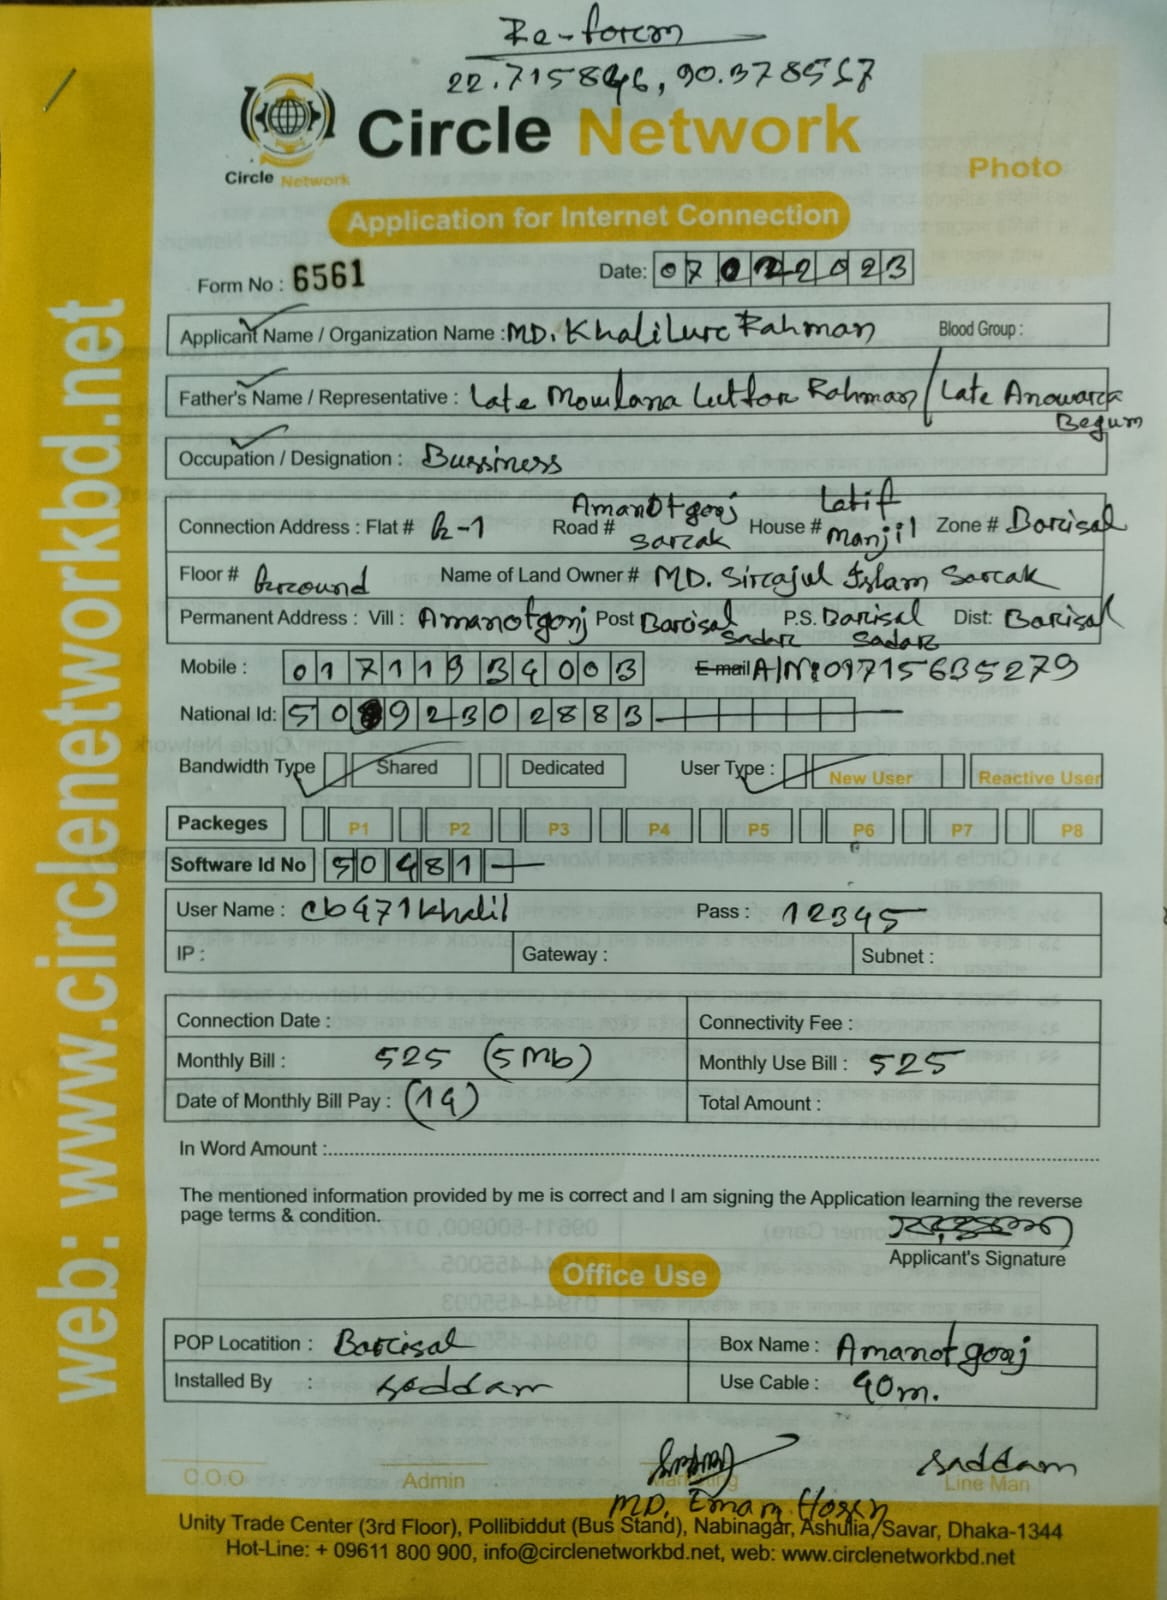 Re-forcm
22.715846, 90.378567
Circle Network
Circle Network
Photo
Application for Internet Connection
Form No : 6561
Date: 07022023
Applicant Name / Organization Name : MD. Khalilurc Rahman Blood Group :
Father's Name / Representative : Late Moulana Lutfor Rahman / Late Anowarca Begum
Occupation / Designation : Bussiness
Connection Address : Flat # G-1 Road # Amanotgonj Sarcak House # Latif Manjil Zone # Barcisal
Floor # Grcound Name of Land Owner # MD. Sircajul Islam Sarcak
Permanent Address : Vill : Amanotgonj Post Barcisal Sadarc P.S. Barcisal Sadarc Dist: Barcisal
Mobile : 01711934003 E-mail A/N: 01715635279
National Id: 50892302883
Bandwidth Type Shared Dedicated User Type : New User Reactive User
Packeges P1 P2 P3 P4 P5 P6 P7 P8
Software Id No 50481
User Name : cb471khalil Pass : 12345
IP : Gateway : Subnet :
Connection Date : Connectivity Fee :
Monthly Bill : 525 (5Mb) Monthly Use Bill : 525
Date of Monthly Bill Pay : (14) Total Amount :
In Word Amount :
The mentioned information provided by me is correct and I am signing the Application learning the reverse
page terms & condition.
Applicant's Signature
Office Use
POP Locatition : Barcisal Box Name : Amanotgonj
Installed By : Saddam Use Cable : 40m.
Saddam
C.O.O Admin Marketing Line Man
MD. Emam Hosen
Unity Trade Center (3rd Floor), Pollibiddut (Bus Stand), Nabinagar, Ashulia/Savar, Dhaka-1344
Hot-Line: + 09611 800 900, info@circlenetworkbd.net, web: www.circlenetworkbd.net
web: www.circlenetworkbd.net